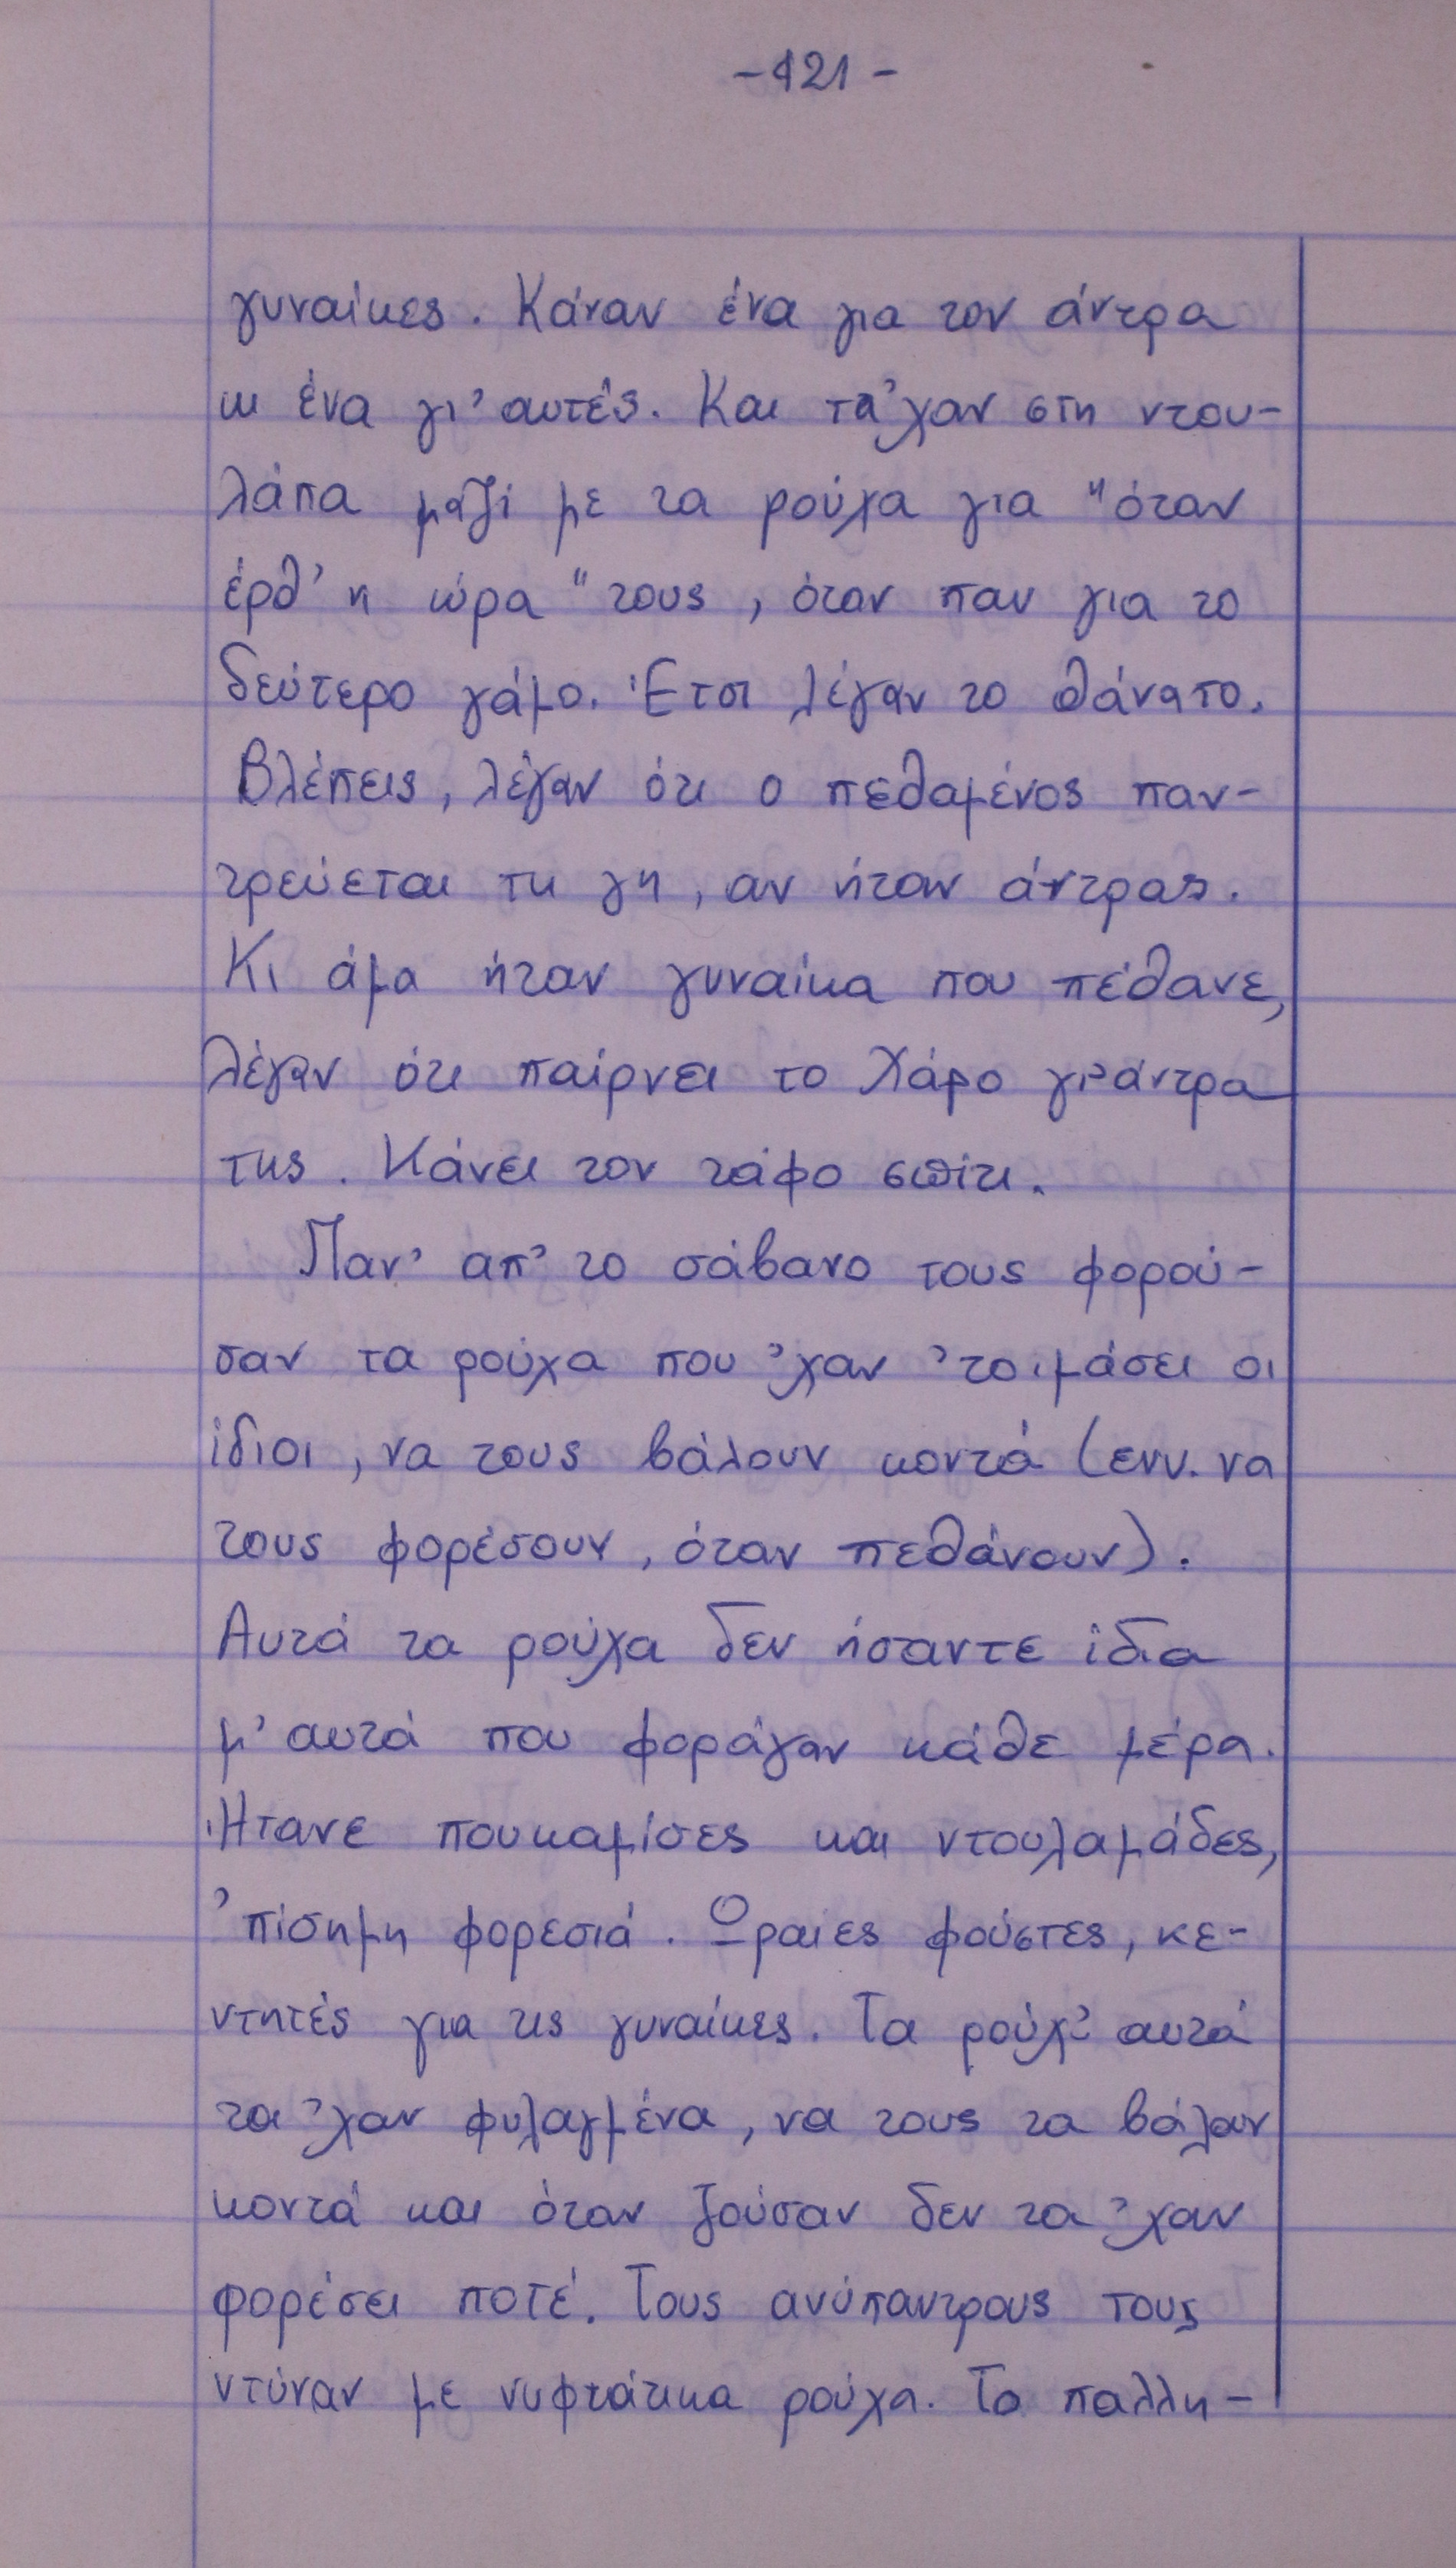 -121-
γυναίκες. Κάναν ένα για τον άντρα
κι ένα γι' αυτές. Και τα 'χαν στη ντου-
λάπα μαζί με τα ρούχα για "όταν
έρθ' η ώρα" τους, όταν παν για το
δεύτερο γάμο. Έτσι λέγαν το θάνατο.
Βλέπεις, λέγαν ότι ο πεθαμένος παν-
τρεύεται τη γη, αν ήταν άντρας.
Κι άμα ήταν γυναίκα που πέθανε,
λέγαν ότι παίρνει το Χάρο γι' άντρα
της. Κάνει τον τάφο σπίτι.
Παν' απ' το σάβανο τους φορού-
σαν τα ρούχα που 'χαν 'τοιμάσει οι
ίδιοι, να τους βάλουν κοντά (ενν. να
τους φορέσουν, όταν πεθάνουν).
Αυτά τα ρούχα δεν ήσαντε ίδια
μ' αυτά που φοράγαν κάθε μέρα.
Ήτανε πουκαμίσες και ντουλαμάδες,
'πίσημη φορεσιά. Ωραίες φούστες, κε-
ντητές για τις γυναίκες. Τα ρούχ' αυτά
τα 'χαν φυλαγμένα, να τους τα βάλουν
κοντά και όταν ζούσαν δεν τα 'χαν
φορέσει ποτέ. Τους ανύπαντρους τους
ντύναν με νυφτάτικα ρούχα. Το παλλη-